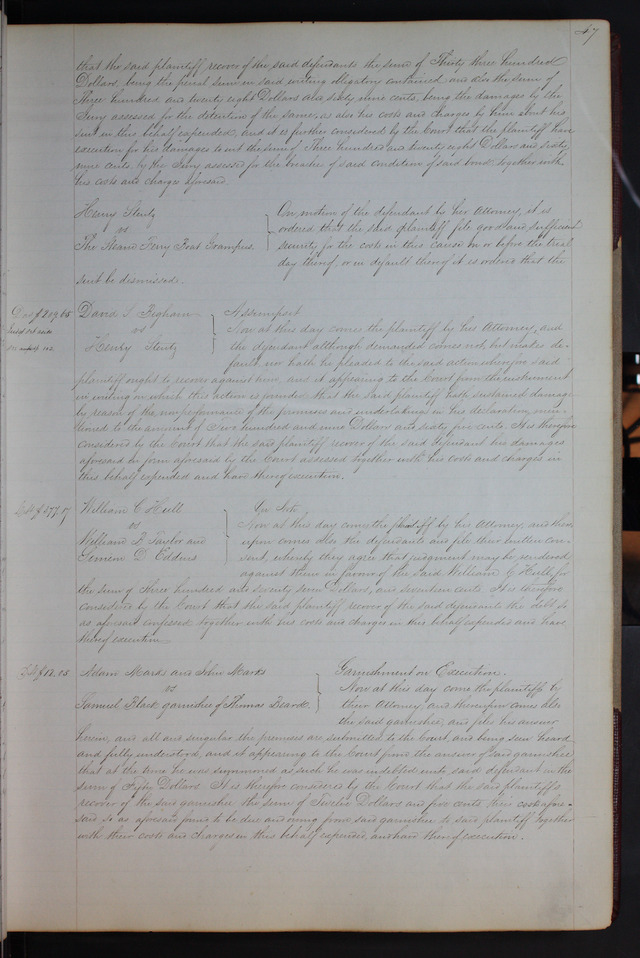 47
that the said plaintiff recover of the said defendants the sum of Thirty three hundred
Dollars being the penal sum in said writing obligatory contained and also the sum of
Three hundred and twenty eight Dollars and sixty nine cents, being the damages by the
Jury assessed for the detention of the same, as also his costs and charges by him about his
suit in this behalf expended, and it is further considered by the Court that the plaintiff have
execution for his damages to wit the sum of Three hundred and twenty eight Dollars and sixty
nine cents, by the Jury assessed for the breaches of said condition of said bond, together with
his costs and charges aforesaid.
Henry Stentz
vs
The Ferry Boat
On motion of the defendant by her Attorney, it is
ordered that the said plaintiff file good and sufficient
security for the costs in this cause on or before the trial
day thereof, or in default thereof it is ordered that the
suit be dismissed.
David S. Bigham
vs
Henry Stentz
Assumpsit
Now at this day comes the plaintiff by his Attorney, and
the defendant although demanded comes not, but makes de-
fault, nor hath he pleaded to the said action wherefore said
plaintiff ought to recover against him, and it appearing to the Court from the instrument
in writing on which this action is founded that the said plaintiff hath sustained damage
by reason of the nonperformance of the promises and undertakings in his declaration men-
tioned to the amount of Two hundred and nine Dollars and sixty five cents. It is therefore
considered by the Court that the said plaintiff recover of the said defendant his damages
aforesaid in form aforesaid by the Court assessed together with his costs and charges in
this behalf expended and have thereof execution.
William C Hull
vs
William B Taylor and
Simeon D Eddins
Now at this day comes the plaintiff by his Attorney, and there
upon comes also the defendants and file their written con-
sent, whereby they agree that judgment may be rendered
against them in favor of the said William C Hull, for
the sum of three hundred and seventy seven Dollars, and seventeen cents. It is therefore
considered by the Court that the said plaintiff recover of the said defendants the debt so
as aforesaid confessed together with his costs and charges in this behalf expended and have
thereof execution.
Adam Marks and John Marks
vs
Samuel Black garnishee of Thomas Beard
Garnishment on Execution.
Now at this day come the plaintiffs by
their Attorney, and thereupon comes also
the said garnishee, and files his answer
herein, and all and singular the premises are submitted to the Court, and being seen heard
and fully understood, and it appearing to the Court from the answer of said garnishee
that at the time he was summoned as such he was indebted unto said defendant in the
sum of Fifty Dollars. It is therefore considered by the Court that the said plaintiffs
recover of the said garnishee the sum of Twelve Dollars and five cents their costs afore-
said so as aforesaid found to be due and owing from said garnishee to said plaintiff together
with their costs and charges in this behalf expended, and have thereof execution.